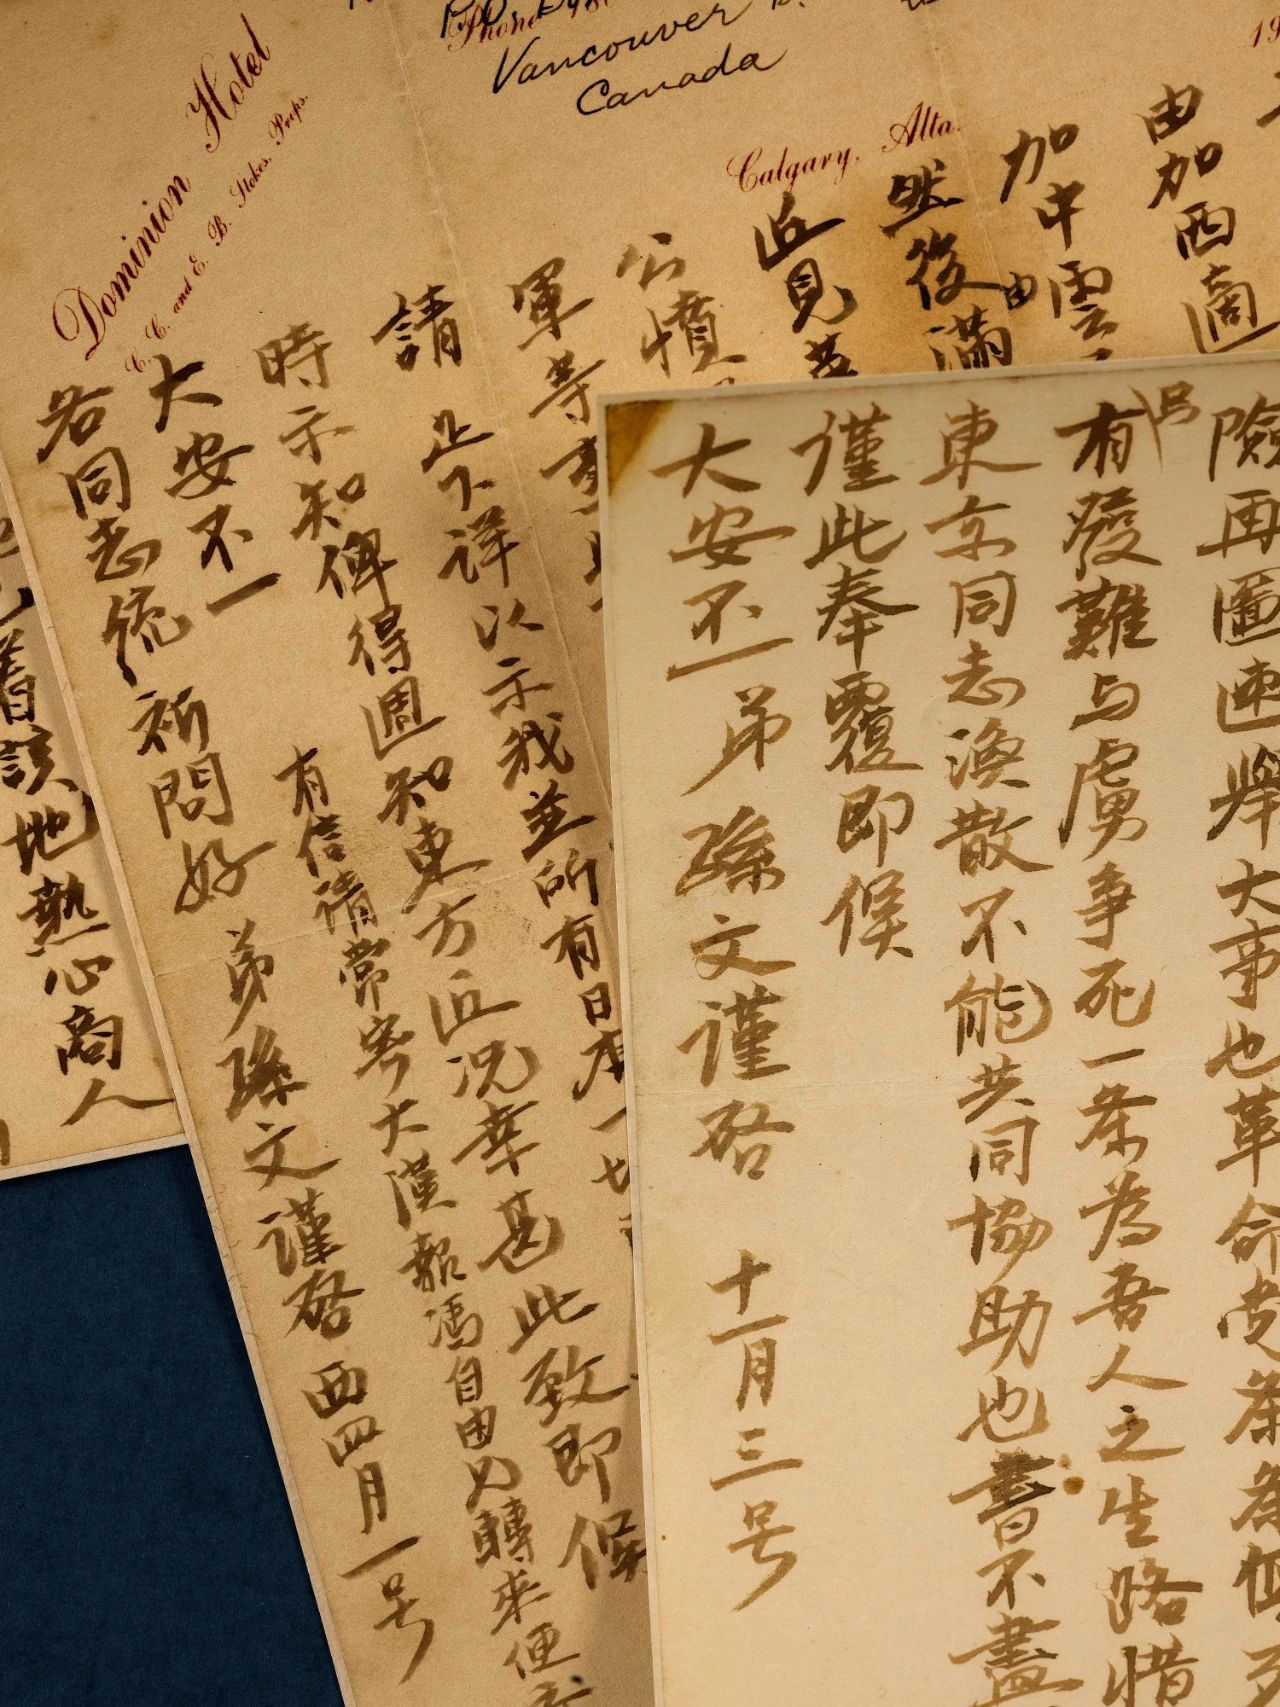 Phone
Vancouver
Canada
Dominion Hotel
C. C. and E. B. Stokes, Props.
Calgary, Alta.
19
由加西
加中雲
由
然後滿
近見
公憤
軍等事
請
足下詳以示我並所有日本一切
時示知俾得週知東方近況幸甚此致即候
大安不一
有信請常寄大漢報馮自由兄轉來便
各同志統祈問好
弟孫文謹啓 西四月一号
着該地熱心商人
險再圖速舉大事也革命尚
有發難与虜爭死一条為吾人之生路惜
東京同志渙散不能共同協助也書不盡
謹此奉覆即候
大安不一 弟孫文謹啓 十一月三号